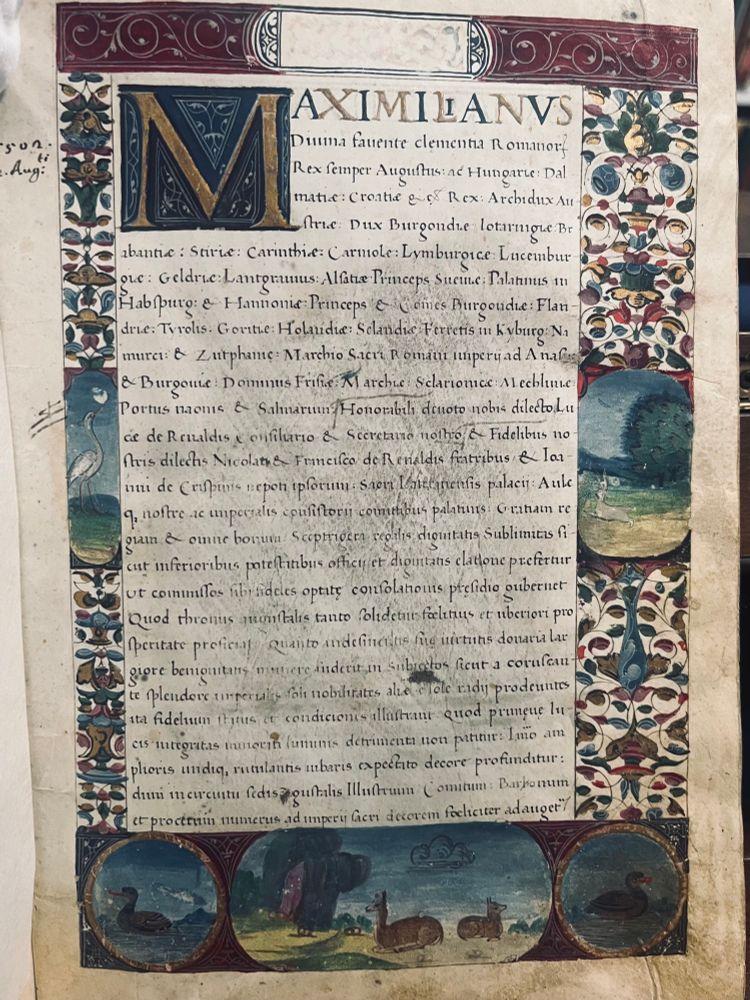 1502.
ti
Aug:
MAXIMILIANVS
Diuina fauente clementia Romanorꝝ
Rex semper Augustus: ac Hungarie: Dal
matiæ: Croatiæ &c Rex: Archidux Au
striæ: Dux Burgondiæ Lotaringiæ Br
abantiæ: Stiriæ: Carinthiæ: Carniole: Lymburgicæ: Lucembur
giæ: Geldriæ: Lantgrauius: Alsatiæ Princeps Sueuiæ: Palatinus in
Habspurg: & Hannoniæ: Princeps & Comes Burgondiæ: Flan
driæ: Tyrolis: Goritiæ: Holandiæ: Selandiæ: Ferretis in Kyburg: Na
murci: & Zutphaniæ: Marchio Sacri Romani imperij ad Anasū
& Burgouiæ: Dominus Frisiæ: Marchiæ: Sclauonicæ: Mechliniæ:
Portus naonis & Salinarum: Honorabili deuoto nobis dilecto Lu
cæ de Renaldis Consiliario & Secretario nostro: & Fidelibus no
stris dilectis Nicolao & Francisco de Renaldis fratribus: & Ioā
nni de Crispinis nepoti ipsorum: Sacri Lateranensis palacij: Aule
q, nostre ac imperialis consistorij comitibus palatinis: Gratiam re
giam & omne bonum: Sceptrigera regalis dignitatis Sublimitas si
cut inferioribus potestatibus officij et dignitatis elatione prefertur
Vt commissos sibi fideles optate consolationis presidio gubernet
Quod thronus augustalis tanto solidetur fœlitius et uberiori pro
speritate proficiat: Quanto indeficientis sue uirtutis donaria lar
giore benignitatis munere fuderit in Subiectos sicut a coruscan
te splendore imperialis solij nobilitates aliæ e sole radij prodeuntes
ita fidelium status et condiciones illustrant Quod primeue lu
cis integritas minorati luminis detrimenta non patitur: Imo am
plioris undiq, rutulantis iubaris expectato decore profunditur:
dum in circuitu sedis augustalis Illustrium Comitum: Baronum
et procerum numerus ad imperij sacri decorem fœliciter adauget